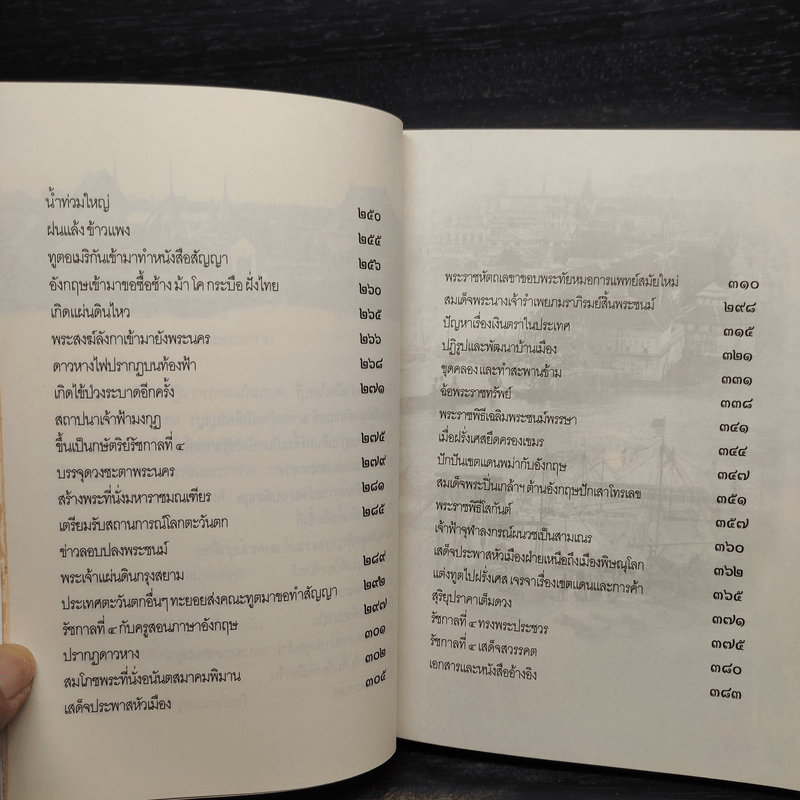 น้ำท่วมใหญ่ ๒๕๐
ฝนแล้ง ข้าวแพง ๒๕๕
ทูตอเมริกันเข้ามาทำหนังสือสัญญา ๒๕๖
อังกฤษเข้ามาขอซื้อช้าง ม้า โค กระบือ ฝั่งไทย ๒๖๐
เกิดแผ่นดินไหว ๒๖๕
พระสงฆ์ลังกาเข้ามายังพระนคร ๒๖๖
ดาวหางไฟปรากฏบนท้องฟ้า ๒๖๘
เกิดไข้ป่วงระบาดอีกครั้ง ๒๗๑
สถาปนาเจ้าฟ้ามงกุฎ
ขึ้นเป็นกษัตริย์รัชกาลที่ ๔ ๒๗๕
บรรจุดวงชะตาพระนคร ๒๗๙
สร้างพระที่นั่งมหาราชมณเฑียร ๒๘๑
เตรียมรับสถานการณ์โลกตะวันตก ๒๘๕
ข่าวลอบปลงพระชนม์
พระเจ้าแผ่นดินกรุงสยาม ๒๘๙
ประเทศตะวันตกอื่นๆ ทะยอยส่งคณะทูตมาขอทำสัญญา ๒๙๒
รัชกาลที่ ๔ กับครูสอนภาษาอังกฤษ ๒๙๗
ปรากฏดาวหาง ๓๐๑
สมโภชพระที่นั่งอนันตสมาคมพิมาน ๓๐๒
เสด็จประพาสหัวเมือง ๓๐๕
พระราชหัตถเลขาขอบพระทัยหมอการแพทย์สมัยใหม่ ๓๑๐
สมเด็จพระนางเจ้ารำเพยภมราภิรมย์สิ้นพระชนม์ ๒๙๘
ปัญหาเรื่องเงินตราในประเทศ ๓๑๕
ปฏิรูปและพัฒนาบ้านเมือง ๓๒๑
ขุดคลอง และทำสะพานข้าม ๓๓๑
ฉ้อพระราชทรัพย์ ๓๓๘
พระราชพิธีเฉลิมพระชนม์พรรษา ๓๔๑
เมื่อฝรั่งเศสยึดครองเขมร ๓๔๔
ปักปันเขตแดนพม่ากับอังกฤษ ๓๔๗
สมเด็จพระปิ่นเกล้าฯ ต้านอังกฤษปักเสาโทรเลข ๓๕๑
พระราชพิธีโสกันต์ ๓๕๗
เจ้าฟ้าจุฬาลงกรณ์ผนวชเป็นสามเณร ๓๖๐
เสด็จประพาสหัวเมืองฝ่ายเหนือถึงเมืองพิษณุโลก ๓๖๒
แต่งทูตไปฝรั่งเศส เจรจาเรื่องเขตแดนและการค้า ๓๖๕
สุริยุปราคาเต็มดวง ๓๗๑
รัชกาลที่ ๔ ทรงพระประชวร ๓๗๕
รัชกาลที่ ๔ เสด็จสวรรคต ๓๘๐
เอกสารและหนังสืออ้างอิง ๓๘๓